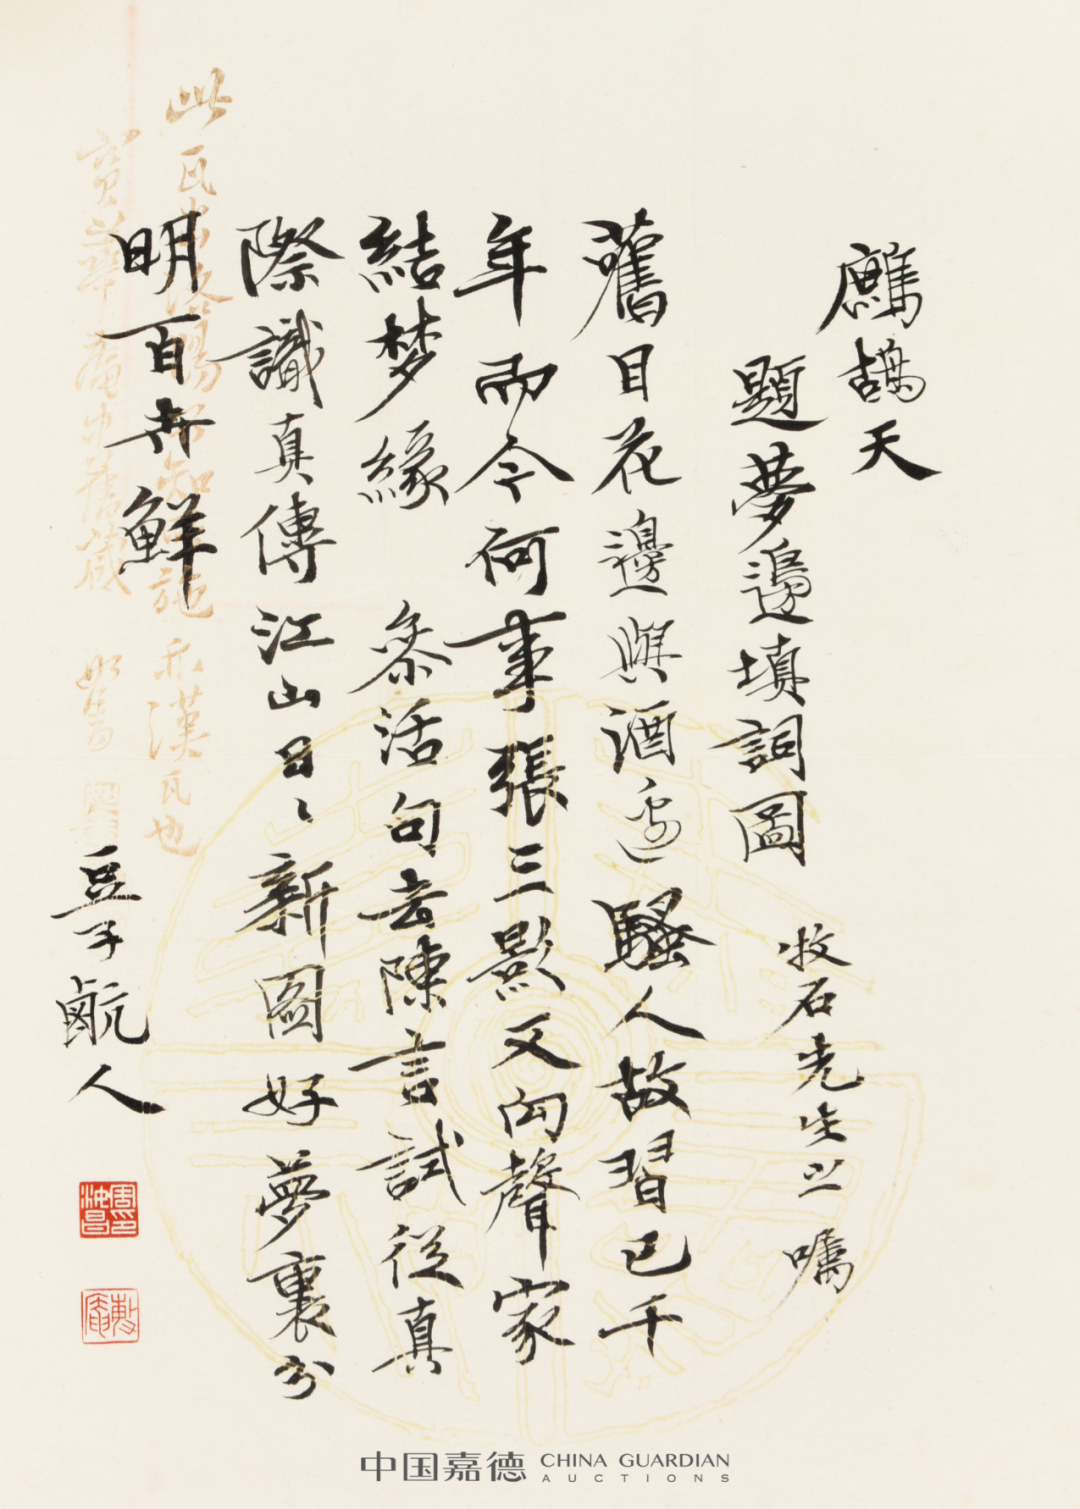 鷓鴣天
題夢邊填詞圖 牧石先生之囑
舊目花邊與酒邊 騷人故習已千
年 而今何事張三影 又向聲家
結梦緣 參活句 去陳言 試從真
際識真傳 江山日〻新圖好 夢裏分
明百卉鮮
豆子䴚人
周汝昌印
此瓦當洛陽 漢瓦也
寶華庵 舊藏
中国嘉德 CHINA GUARDIAN
AUCTIONS